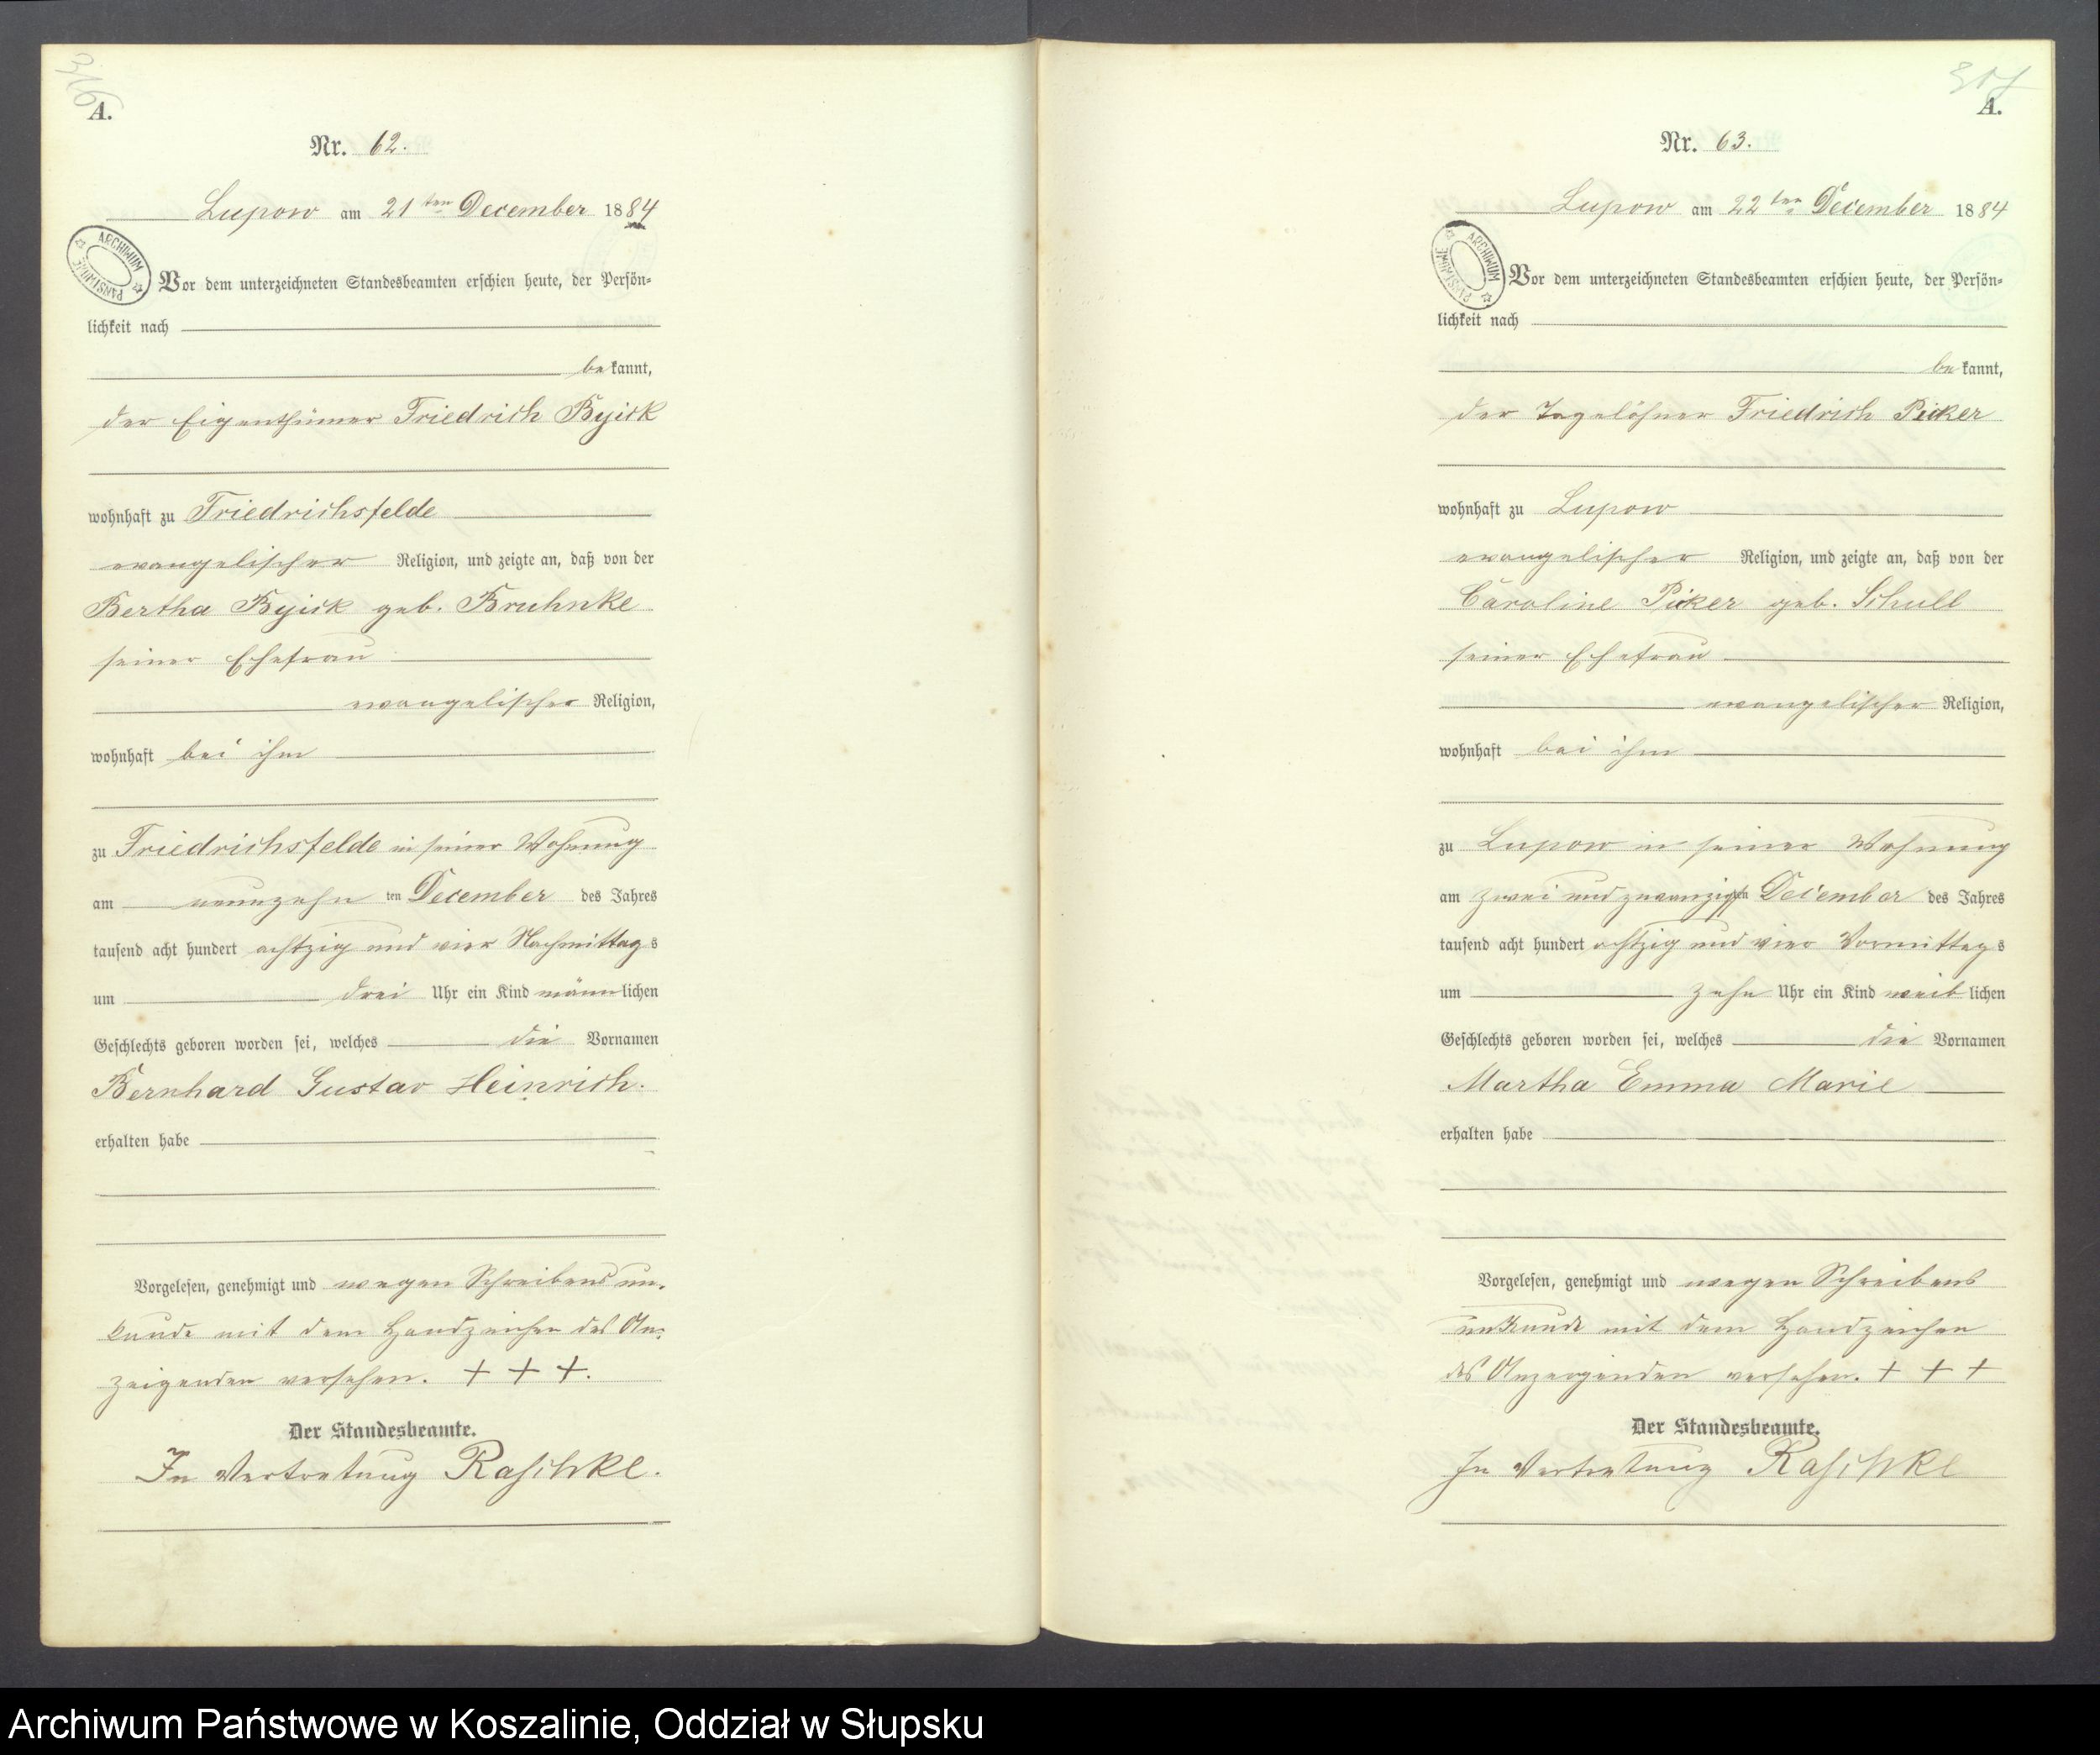 316
A.
Nr. 62.
Lupow am 21ten December 1884
ARCHIWUM PAŃSTWOWE
Vor dem unterzeichneten Standesbeamten erschien heute, der Persön-
lichkeit nach
bekannt,
der Eigenthümer Friedrich Byick
wohnhaft zu Friedrichsfelde
evangelischer Religion, und zeigte an, daß von der
Bertha Byick geb. Bruhnke
seiner Ehefrau
evangelischer Religion,
wohnhaft bei ihm
zu Friedrichsfelde in seiner Wohnung
am neunzehn ten December des Jahres
tausend acht hundert achtzig und vier Nachmittags
um drei Uhr ein Kind männlichen
Geschlechts geboren worden sei, welches die Vornamen
Bernhard Gustav Heinrich.
erhalten habe
Vorgelesen, genehmigt und wegen Schreibens un-
kunde mit dem Handzeichen des An-
zeigenden versehen. + + +.
Der Standesbeamte.
In Vertretung Raschke.
317
A.
Nr. 63.
Lupow am 22ten December 1884
ARCHIWUM PAŃSTWOWE
Vor dem unterzeichneten Standesbeamten erschien heute, der Persön-
lichkeit nach
bekannt,
der Tagelöhner Friedrich Picker
wohnhaft zu Lupow
evangelischer Religion, und zeigte an, daß von der
Caroline Picker geb. Schull
seiner Ehefrau
evangelischer Religion,
wohnhaft bei ihm
zu Lupow in seiner Wohnung
am zwei und zwanzigsten December des Jahres
tausend acht hundert achtzig und vier Vormittags
um zehn Uhr ein Kind weiblichen
Geschlechts geboren worden sei, welches die Vornamen
Martha Emma Marie
erhalten habe
Vorgelesen, genehmigt und wegen Schreibens
unkunde mit dem Handzeichen
des Anzeigenden versehen. + + +
Der Standesbeamte.
In Vertretung Raschke
Archiwum Państwowe w Koszalinie, Oddział w Słupsku